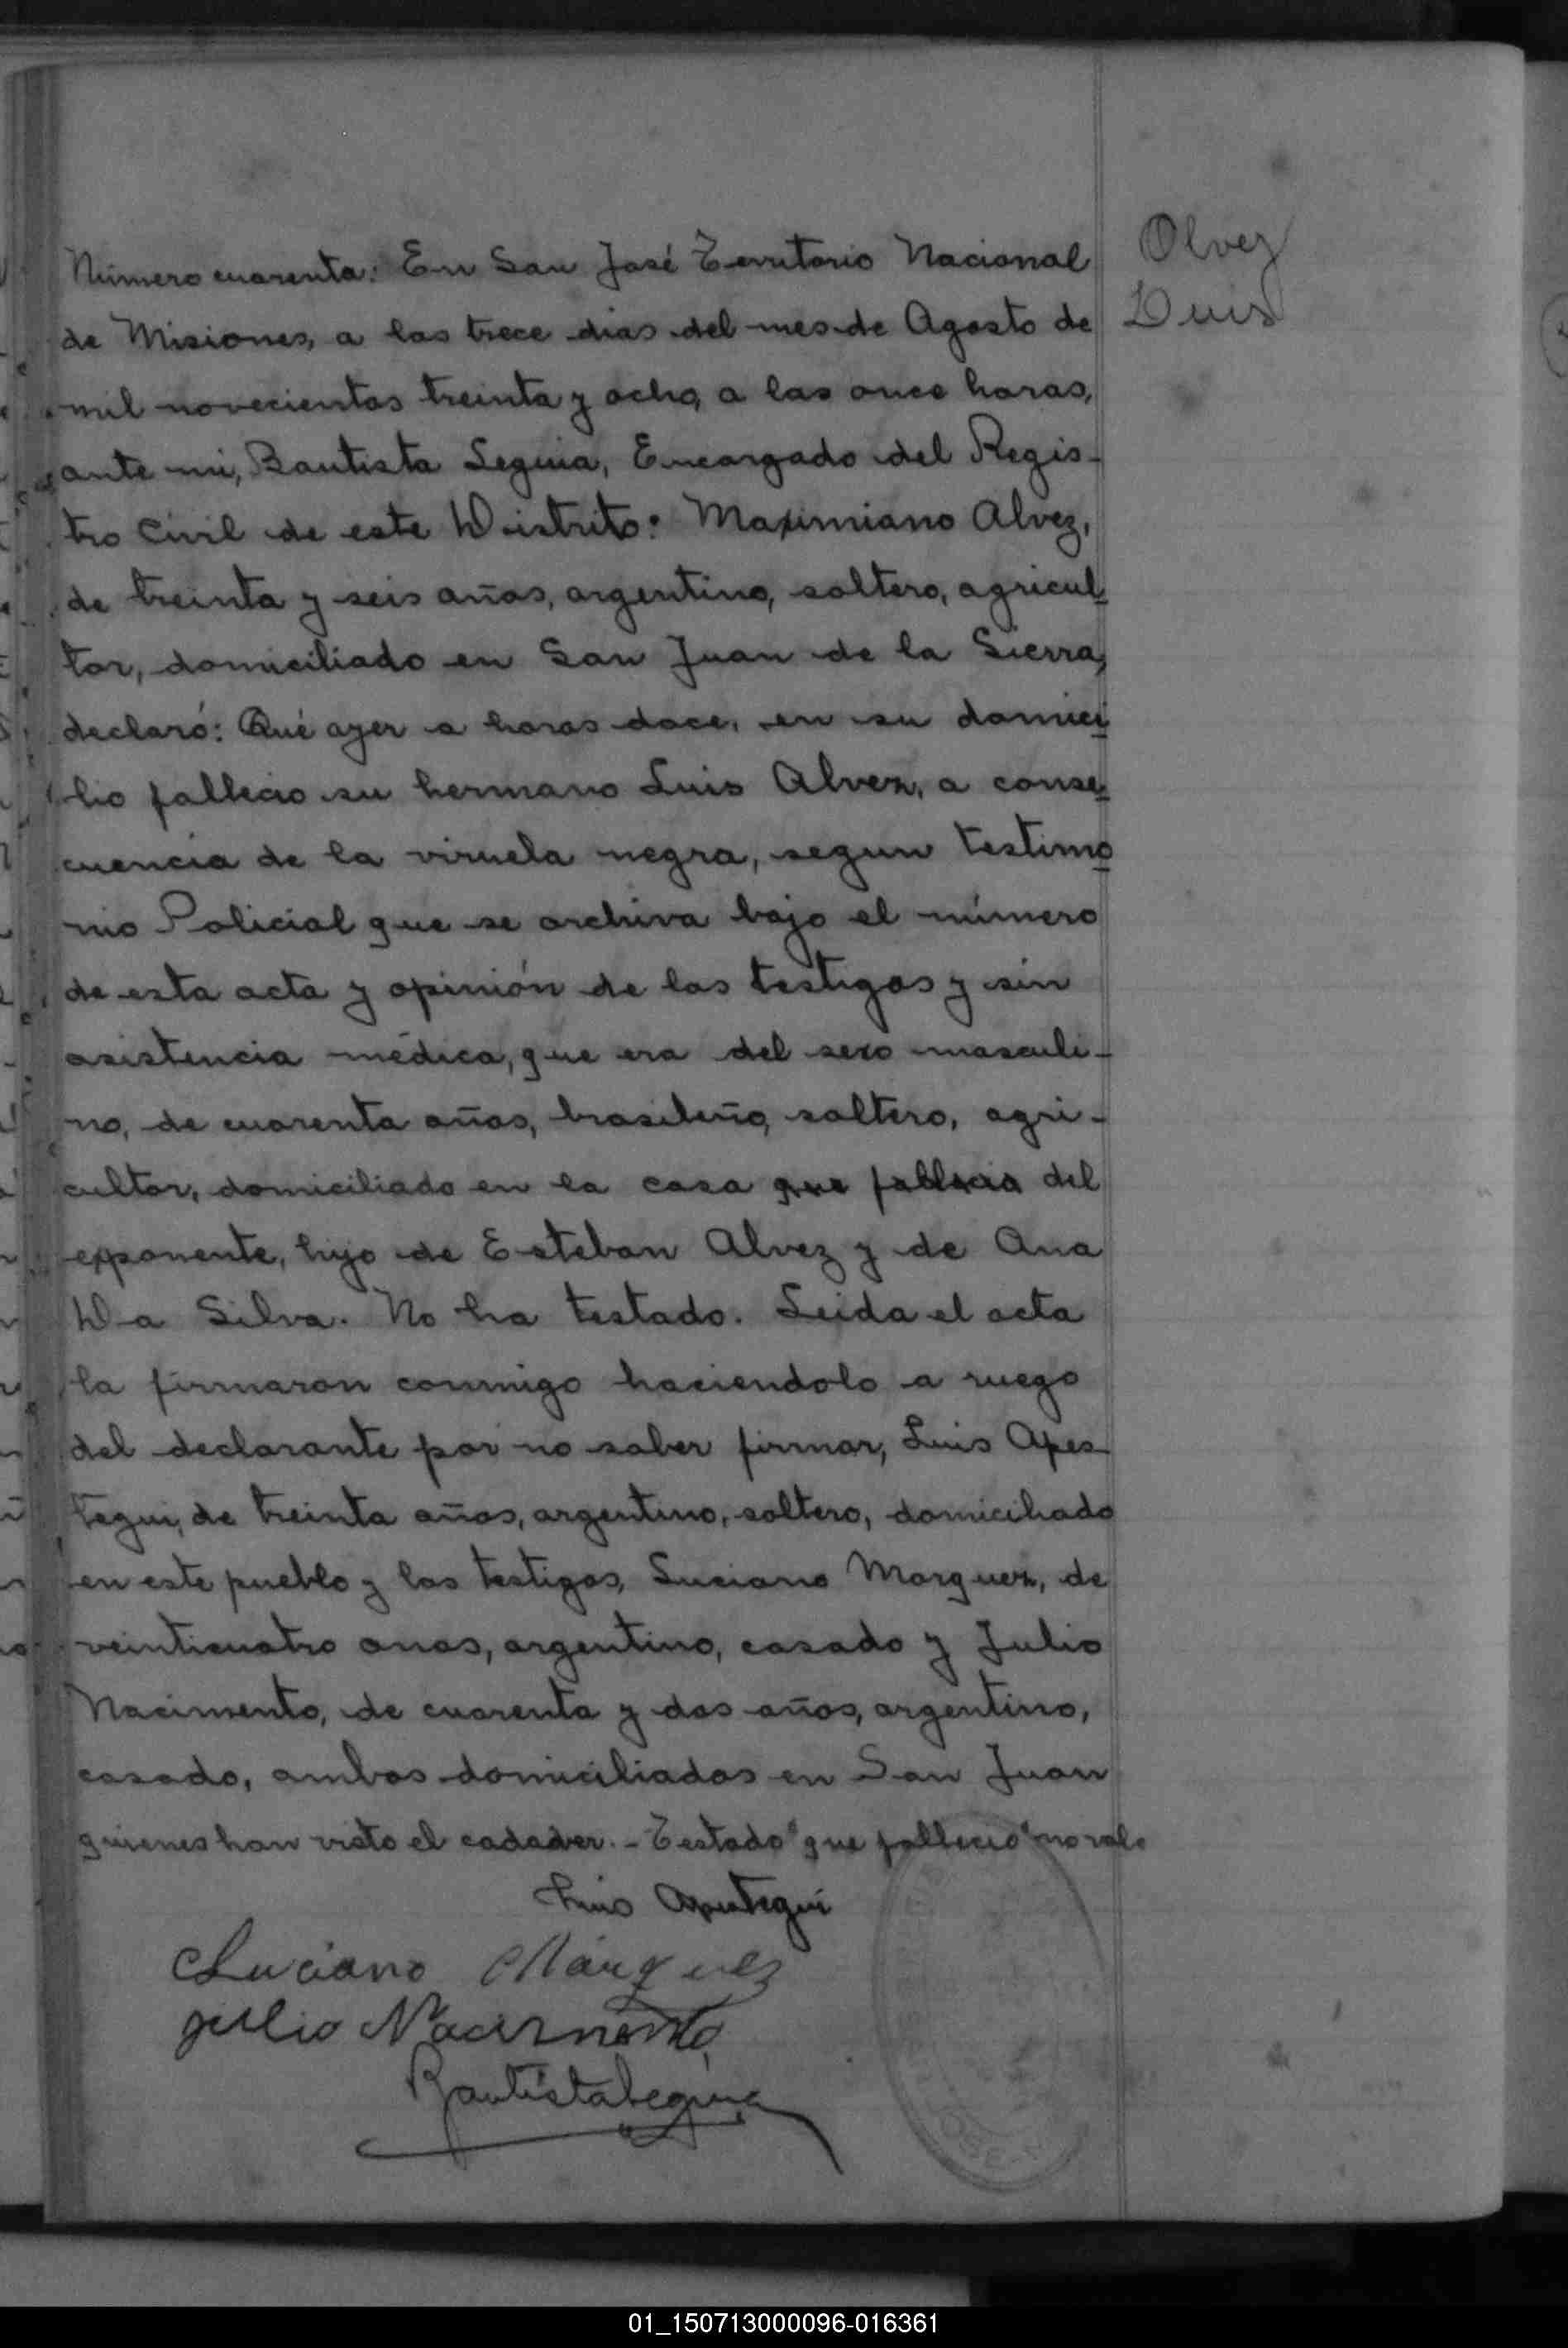 Número cuarenta: En San José Territorio Nacional
Olvez
de Misiones, a los trece dias del mes de Agosto de
Luis
mil novecientos treinta y ocho, a las once horas,
ante mi, Bautista Leguia, Encargado del Regis-
tro Civil de este Distrito: Maximiano Alvez,
de treinta y seis años, argentino, soltero, agricul-
tor, domiciliado en San Juan de la Sierra,
declaró: Qué ayer a horas doce, en su domici
lio fallecio su hermano Luis Alvez, a conse
cuencia de la viruela negra, segun testimo
nio Policial que se archiva bajo el número
de esta acta y opinión de los testigos y sin
asistencia médica, que era del sexo masculi-
no, de cuarenta años, brasileño, soltero, agri-
cultor, domiciliado en la casa que fallecio del
exponente, hijo de Esteban Alvez y de Ana
Da Silva. No ha testado. Leida el acta
la firmaron conmigo haciendolo a ruego
del declarante por no saber firmar, Luis Apes-
tegui, de treinta años, argentino, soltero, domiciliado
en este pueblo y los testigos, Luciano Marquez, de
veinticuatro anos, argentino, casado y Julio
Nacimento, de cuarenta y dos años, argentino,
casado, ambos domiciliados en San Juan
quienes han visto el cadaver.- Testado "que fallecio" no vale
Luis Apestegui
Luciano Márquez
julio Nacimento
Bautista Leguia
01_150713000096-016361